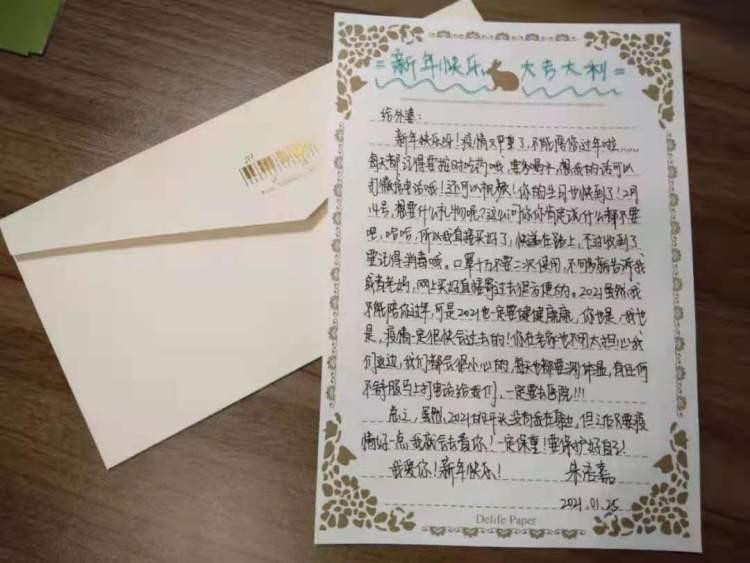 =新年快乐 大吉大利=
给外婆：
新年快乐呀！疫情又严重了，不能陪你过年啦......
每天都记得要按时吃药哦，要多喝水，想我的话可以
打微信电话哦！还可以视频！你的生日也快到了！2月
14号，想要什么礼物呢？这么问你你肯定说什么都不要
吧，哈哈，所以我直接买好了，快递在路上，不过收到了
要记得消毒哦。口罩千万不要二次使用，不够多就告诉我
或者老妈，网上买好直接寄过去很方便的。2021虽然我
不能陪你过年，可是2021也一定要健健康康，你也是，我也
是，疫情一定很快会过去的！你在老家也不用太担心我
们这边，我们都会很小心的，每天也都要测体温，有任何
不舒服马上打电话给我们，一定要去医院！！！
总之，虽然2021的开头没有我在身边，但
情好一点我就会去看你！一定保重！要保护好自己！
我爱你！新年快乐！ 朱 嘉
2021.01.25
Delife Paper